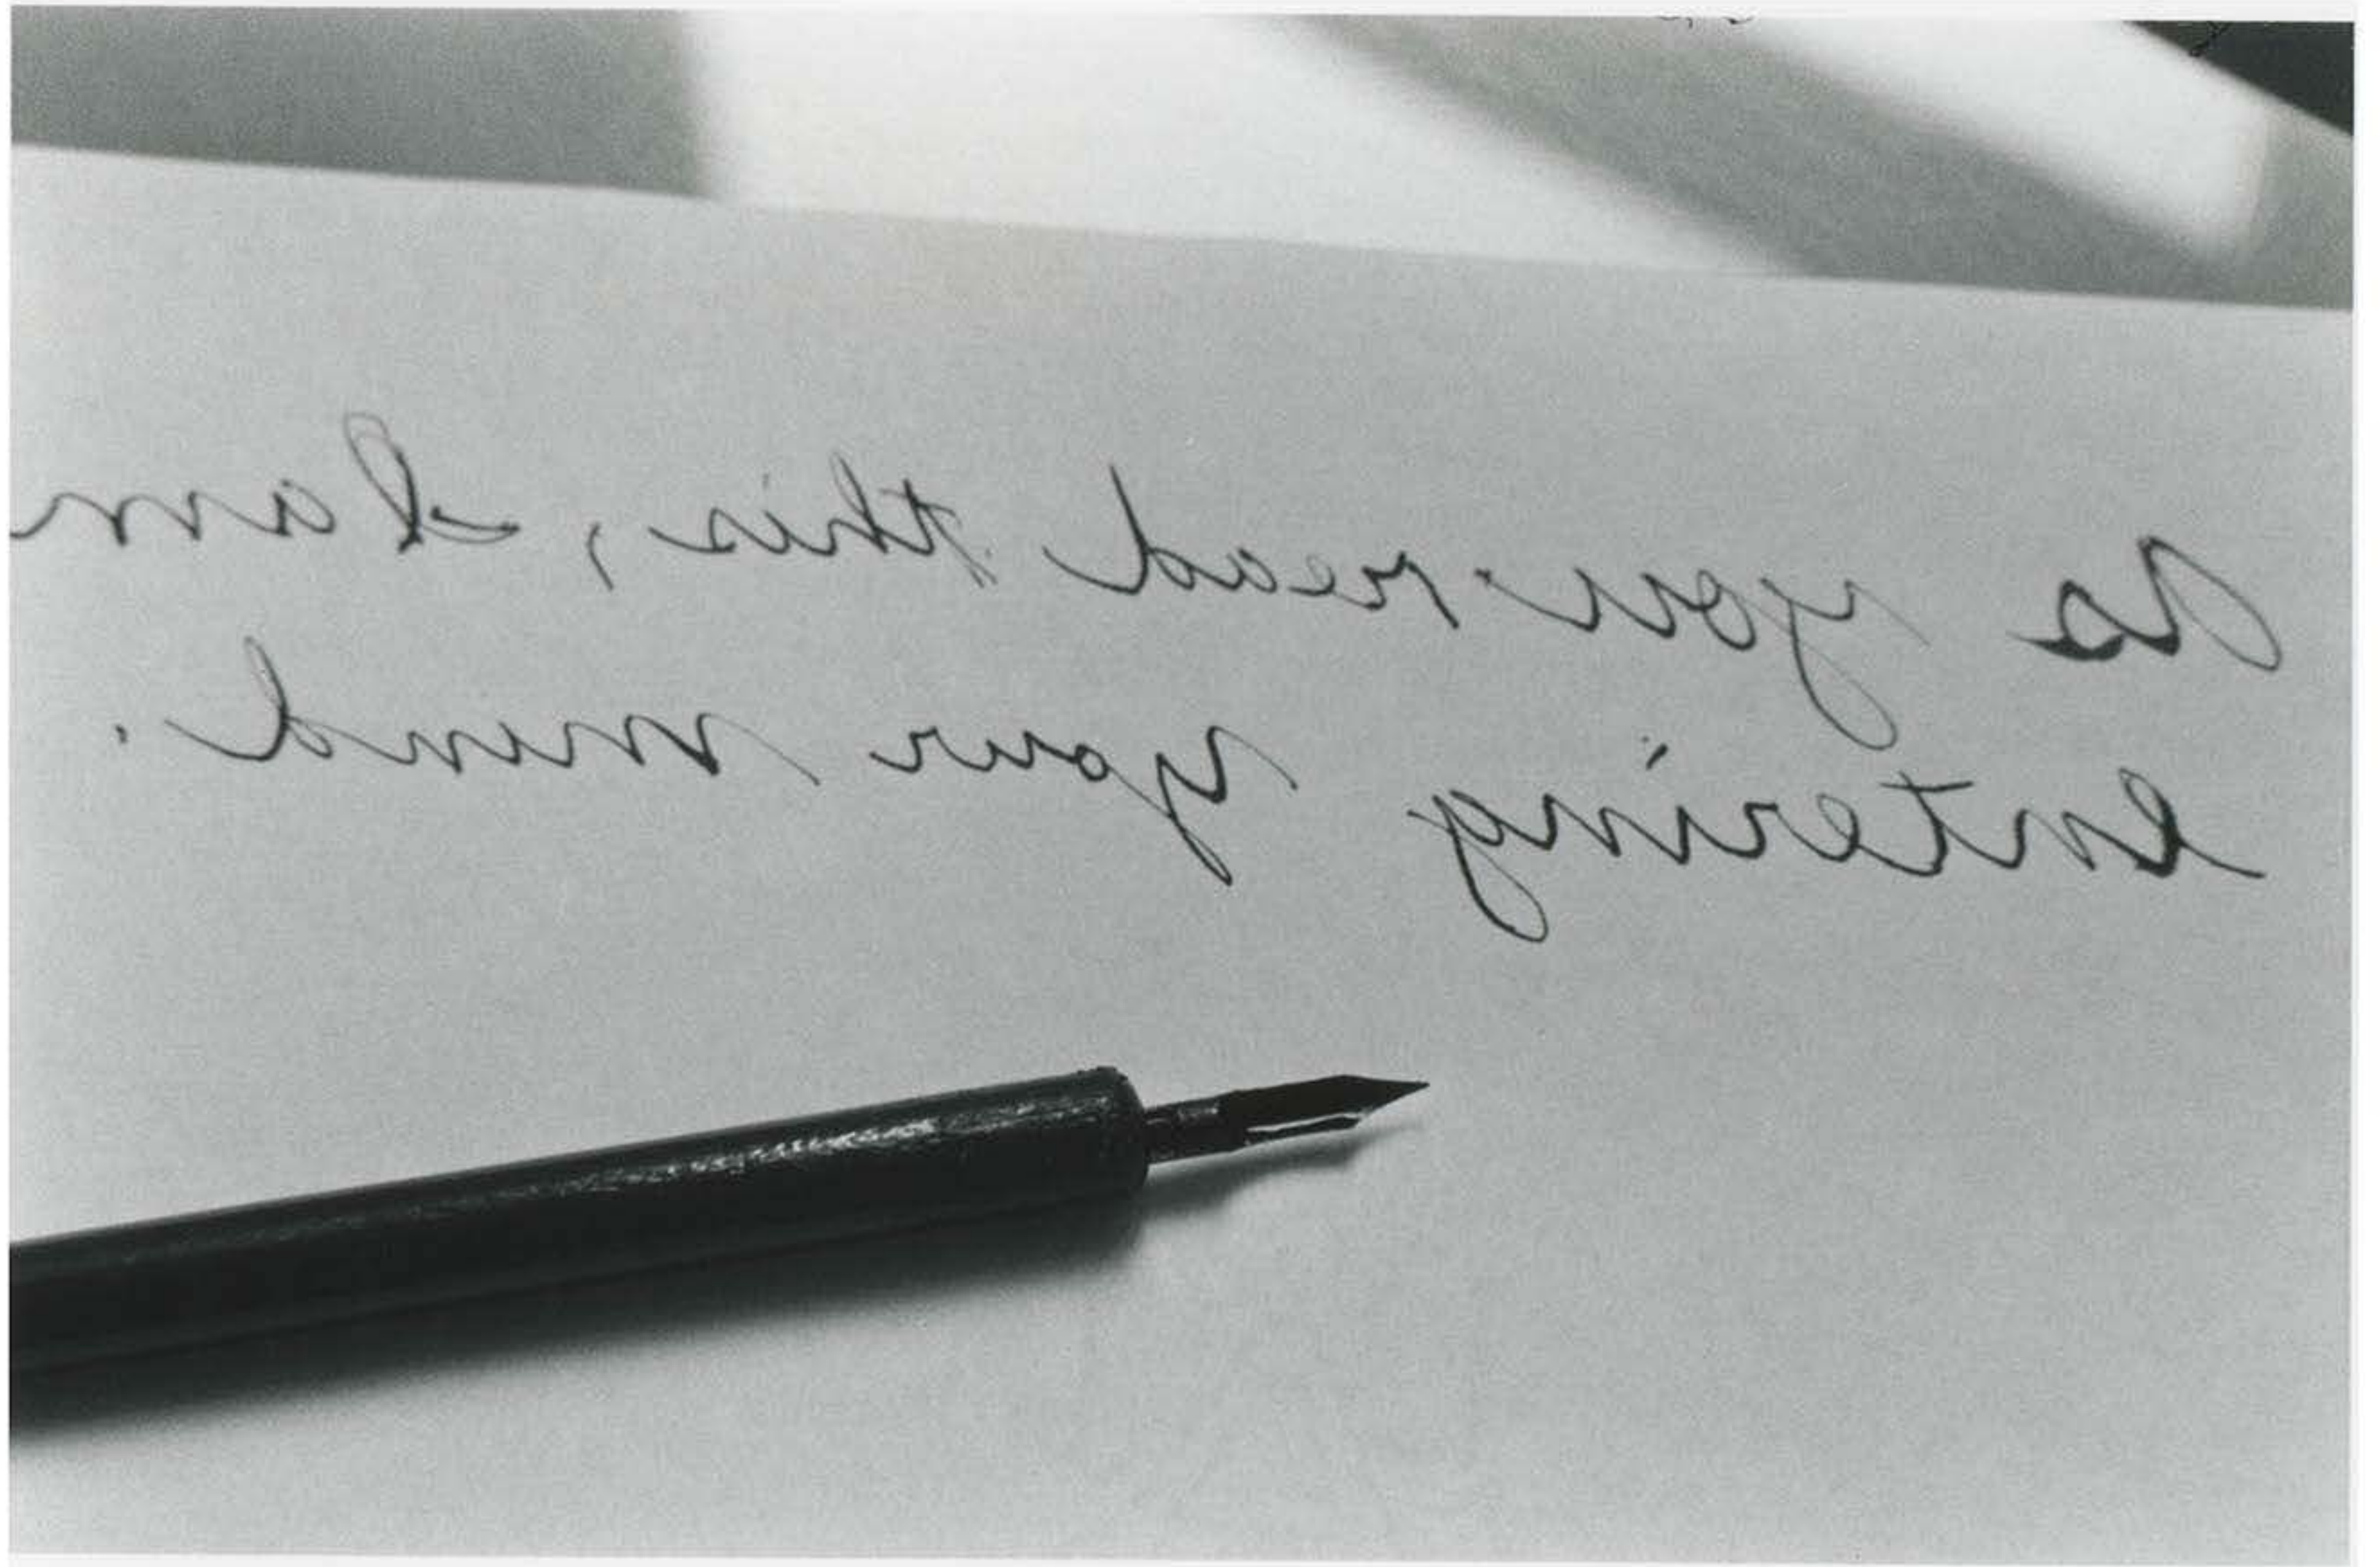 As you read this, I am
entering your mind.